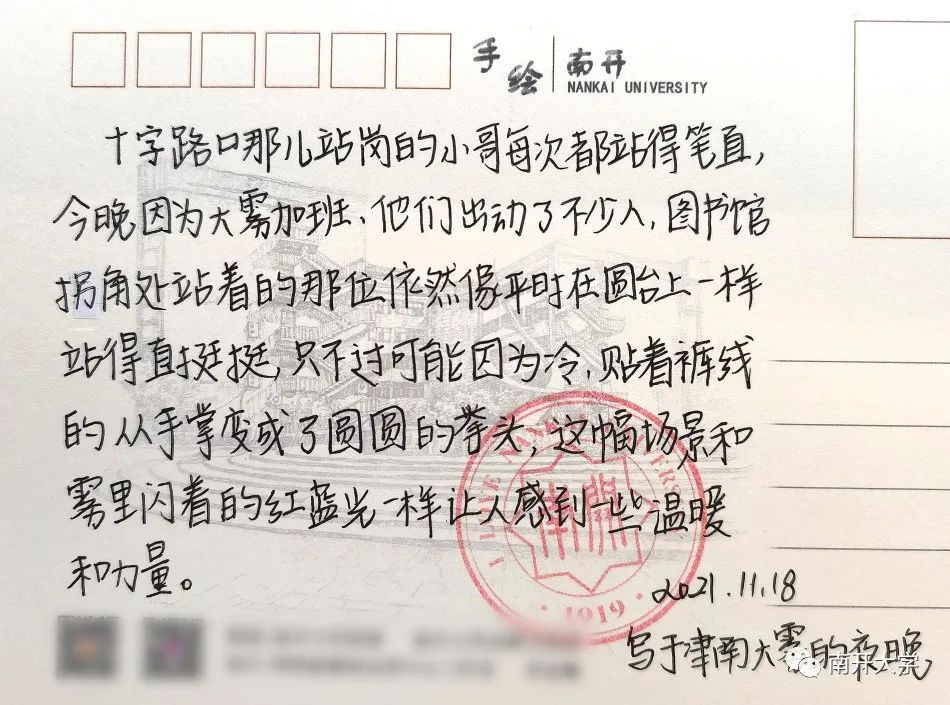 手绘 南开
NANKAI UNIVERSITY
十字路口那儿站岗的小哥每次都站得笔直，
今晚因为大雾加班、他们出动了不少人，图书馆
拐角处站着的那位依然像平时在圆台上一样
站得直挺挺，只不过可能因为冷，贴着裤线
的从手掌变成了圆圆的拳头，这幅场景和
雾里闪着的红蓝光一样让人感到一些温暖
和力量。
I LOVE NANKAI UNIVERSITY
南開
·1919·
2021.11.18
写于津南大雾的夜晚
南开大学